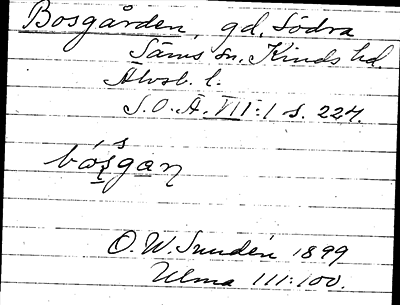 Bosgården, gd, Södra
Säms sn. Kinds hd.
Älvsb. l.
S.O.Ä. VII:1 s. 224.
bósgaɳ
O. W. Sundén 1899
Ulma 111:100.